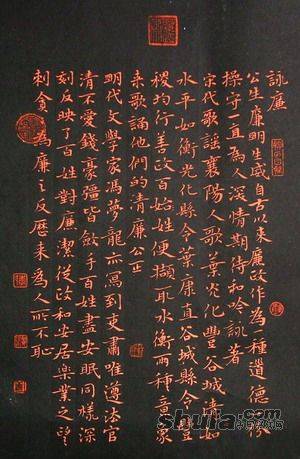 詠廉
公生廉明生威自古以来廉政作為一種道德
操守一直為人深情期待和吟詠著
宋代歌謡襄陽人歌葉光化豐谷城清如
水平如衡光化縣令葉康直谷城縣令豐
稷均行善政百姓便擷取水衡兩種意象
来歌誦他們的清廉公正
明代文學家馮夢龍亦寫到吏肅唯遵法官
清不愛錢豪彊皆斂手百姓盡安眠同樣深
刻反映了百姓對廉潔從政和安居樂業之望
刺貪為廉之反歷来為人所不耻
shufa.com